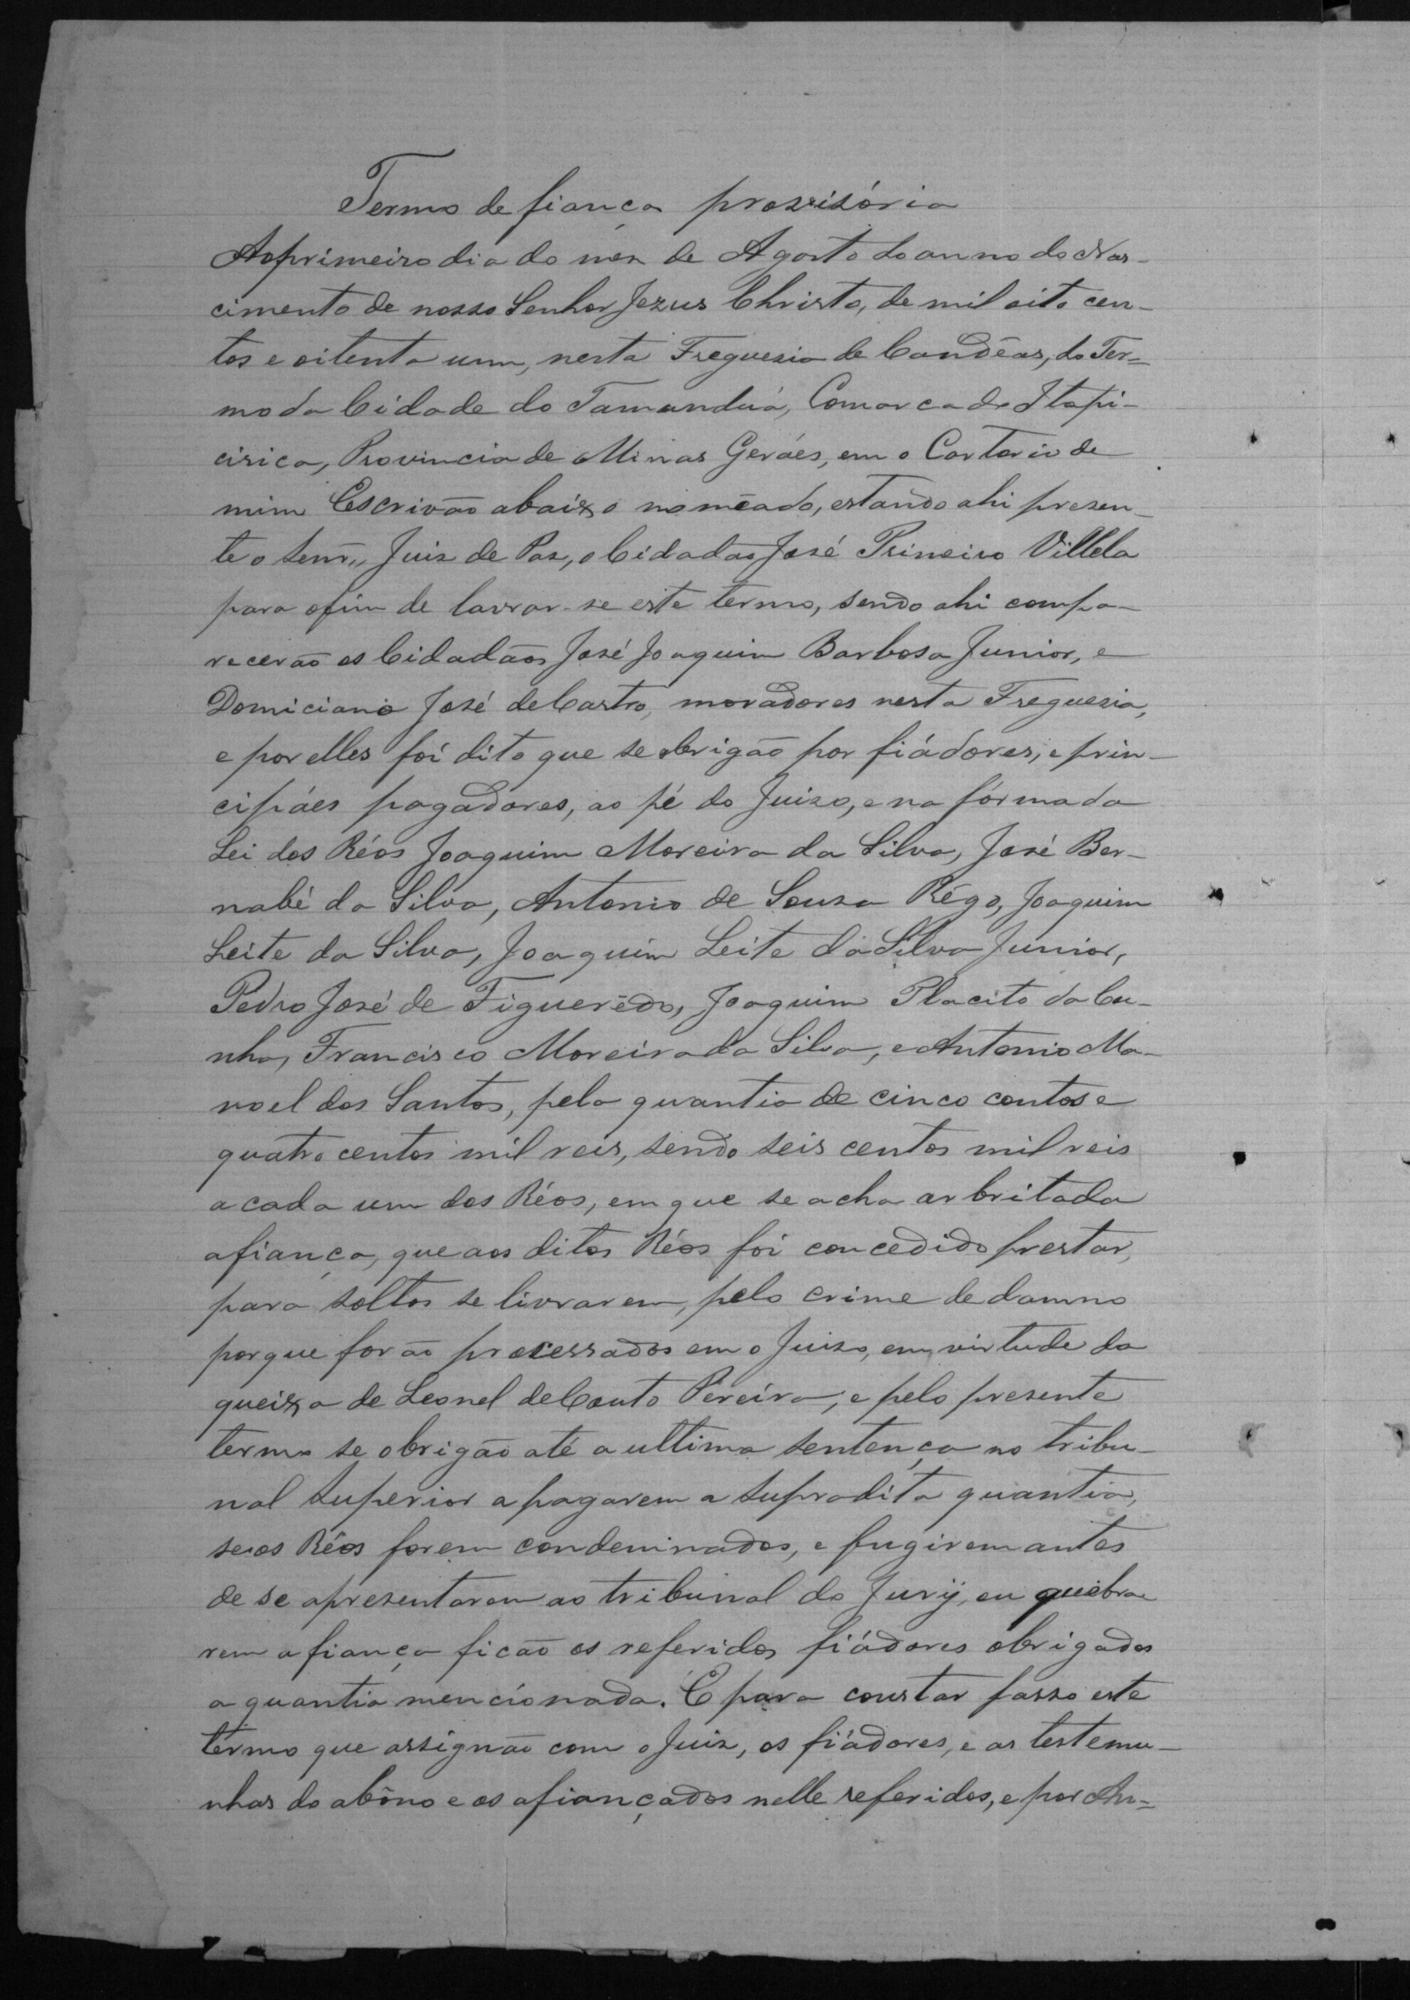 Termo de fiança provisória
Ao primeiro dia do mez de Agosto do anno do Nas-
cimento de nosso Senhor Jezus Christo, de mil oito cen-
tos e oitenta um, nesta Freguezia de Candêas, do Ter=
mo da Cidade do Tamanduá, Comarca de Itapi-
cirica, Provincia de Minas Geráes, em o Cartorio de
mim Escrivão abaixo nomeado, estando ahi presen-
te o Senr., Juiz de Paz, o Cidadão José Primeiro Villela
para o fim de lavrar-se este termo, sendo ahi compa-
recerão os Cidadãos José Joaquim Barbosa Junior, e
Domiciano José de Castro, moradores nesta Freguezia,
e por elles foi dito que se obrigão por fiádores, e prin-
cipáes pagadores, ao pé do Juizo, e na fórma da
Lei dos Réos Joaquim Moreira da Silva, José Ber-
nabé da Silva, Antonio de Souza Rêgo, Joaquim
Leite da Silva, Joaquim Leite da Silva Junior,
Pedro José de Figuerêdo, Joaquim Placito da Cu-
nha, Francisco Moreira da Silva, e Antonio Ma-
noel dos Santos, pela quantia de cinco contos e
quatro centos mil reis, sendo seis centos mil reis
a cada um dos Réos, em que se acha arbritada
a fiança, que aos ditos Réos foi concedido prestar,
para soltos se livrarem, pelo crime de damno
porque forão processados em o Juizo, em virtude da
queixa de Leonel de Couto Pereira, e pelo presente
termo se obrigão até a ultima sentença no tribu-
nal superior a pagarem a supradita quantia,
se os Réos forem condeminados, e fugirem antes
de se apresentarem ao tribunal do Jury, ou quebra
rem a fiança ficão os referidos fiádores obrigados
a quantia mencionada. E para constar fasso este
termo que assignão com o Juiz, os fiádores, e as testemu-
nhas do abôno e os afiançados nelle referidos, e por An=